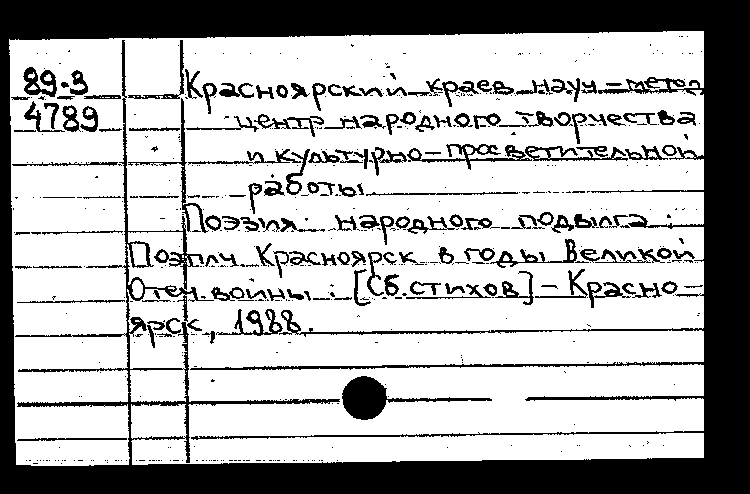 89-3 Красноярский краев науч-метод
4789 центр народного творчества
и культурно-просветительной
работы
Поэзия народного подвига :
Поэтич. Красноярск в годы Великой
Отеч. войны : [Сб. стихов] - Красно-
ярск, 1988.